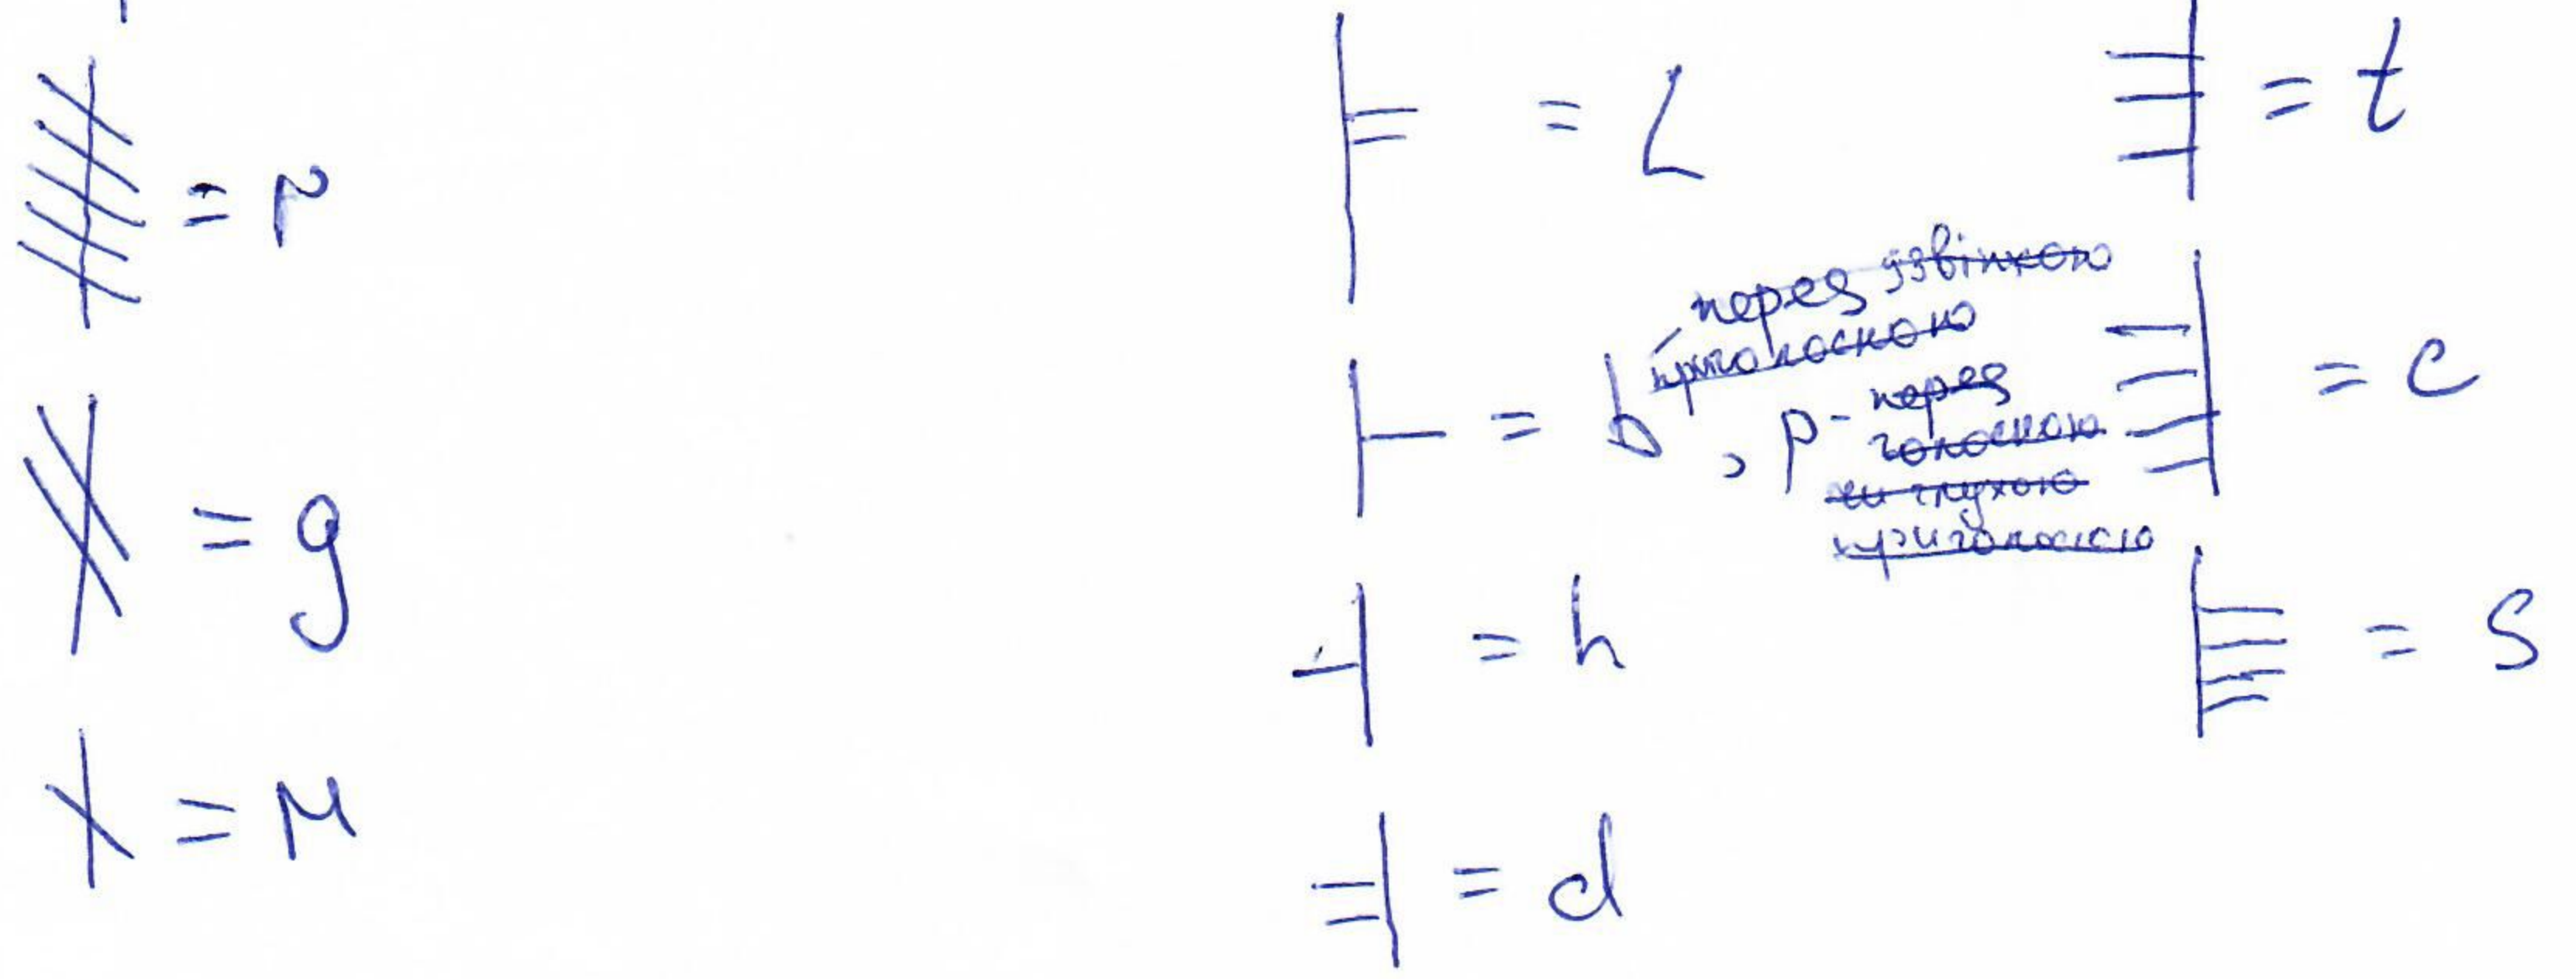 = r
= g
= м
= L
= b перед дзвінкою
приголосною
, p - перед
голосною
чи глухою
приголосною
= h
= d
= t
= c
= s